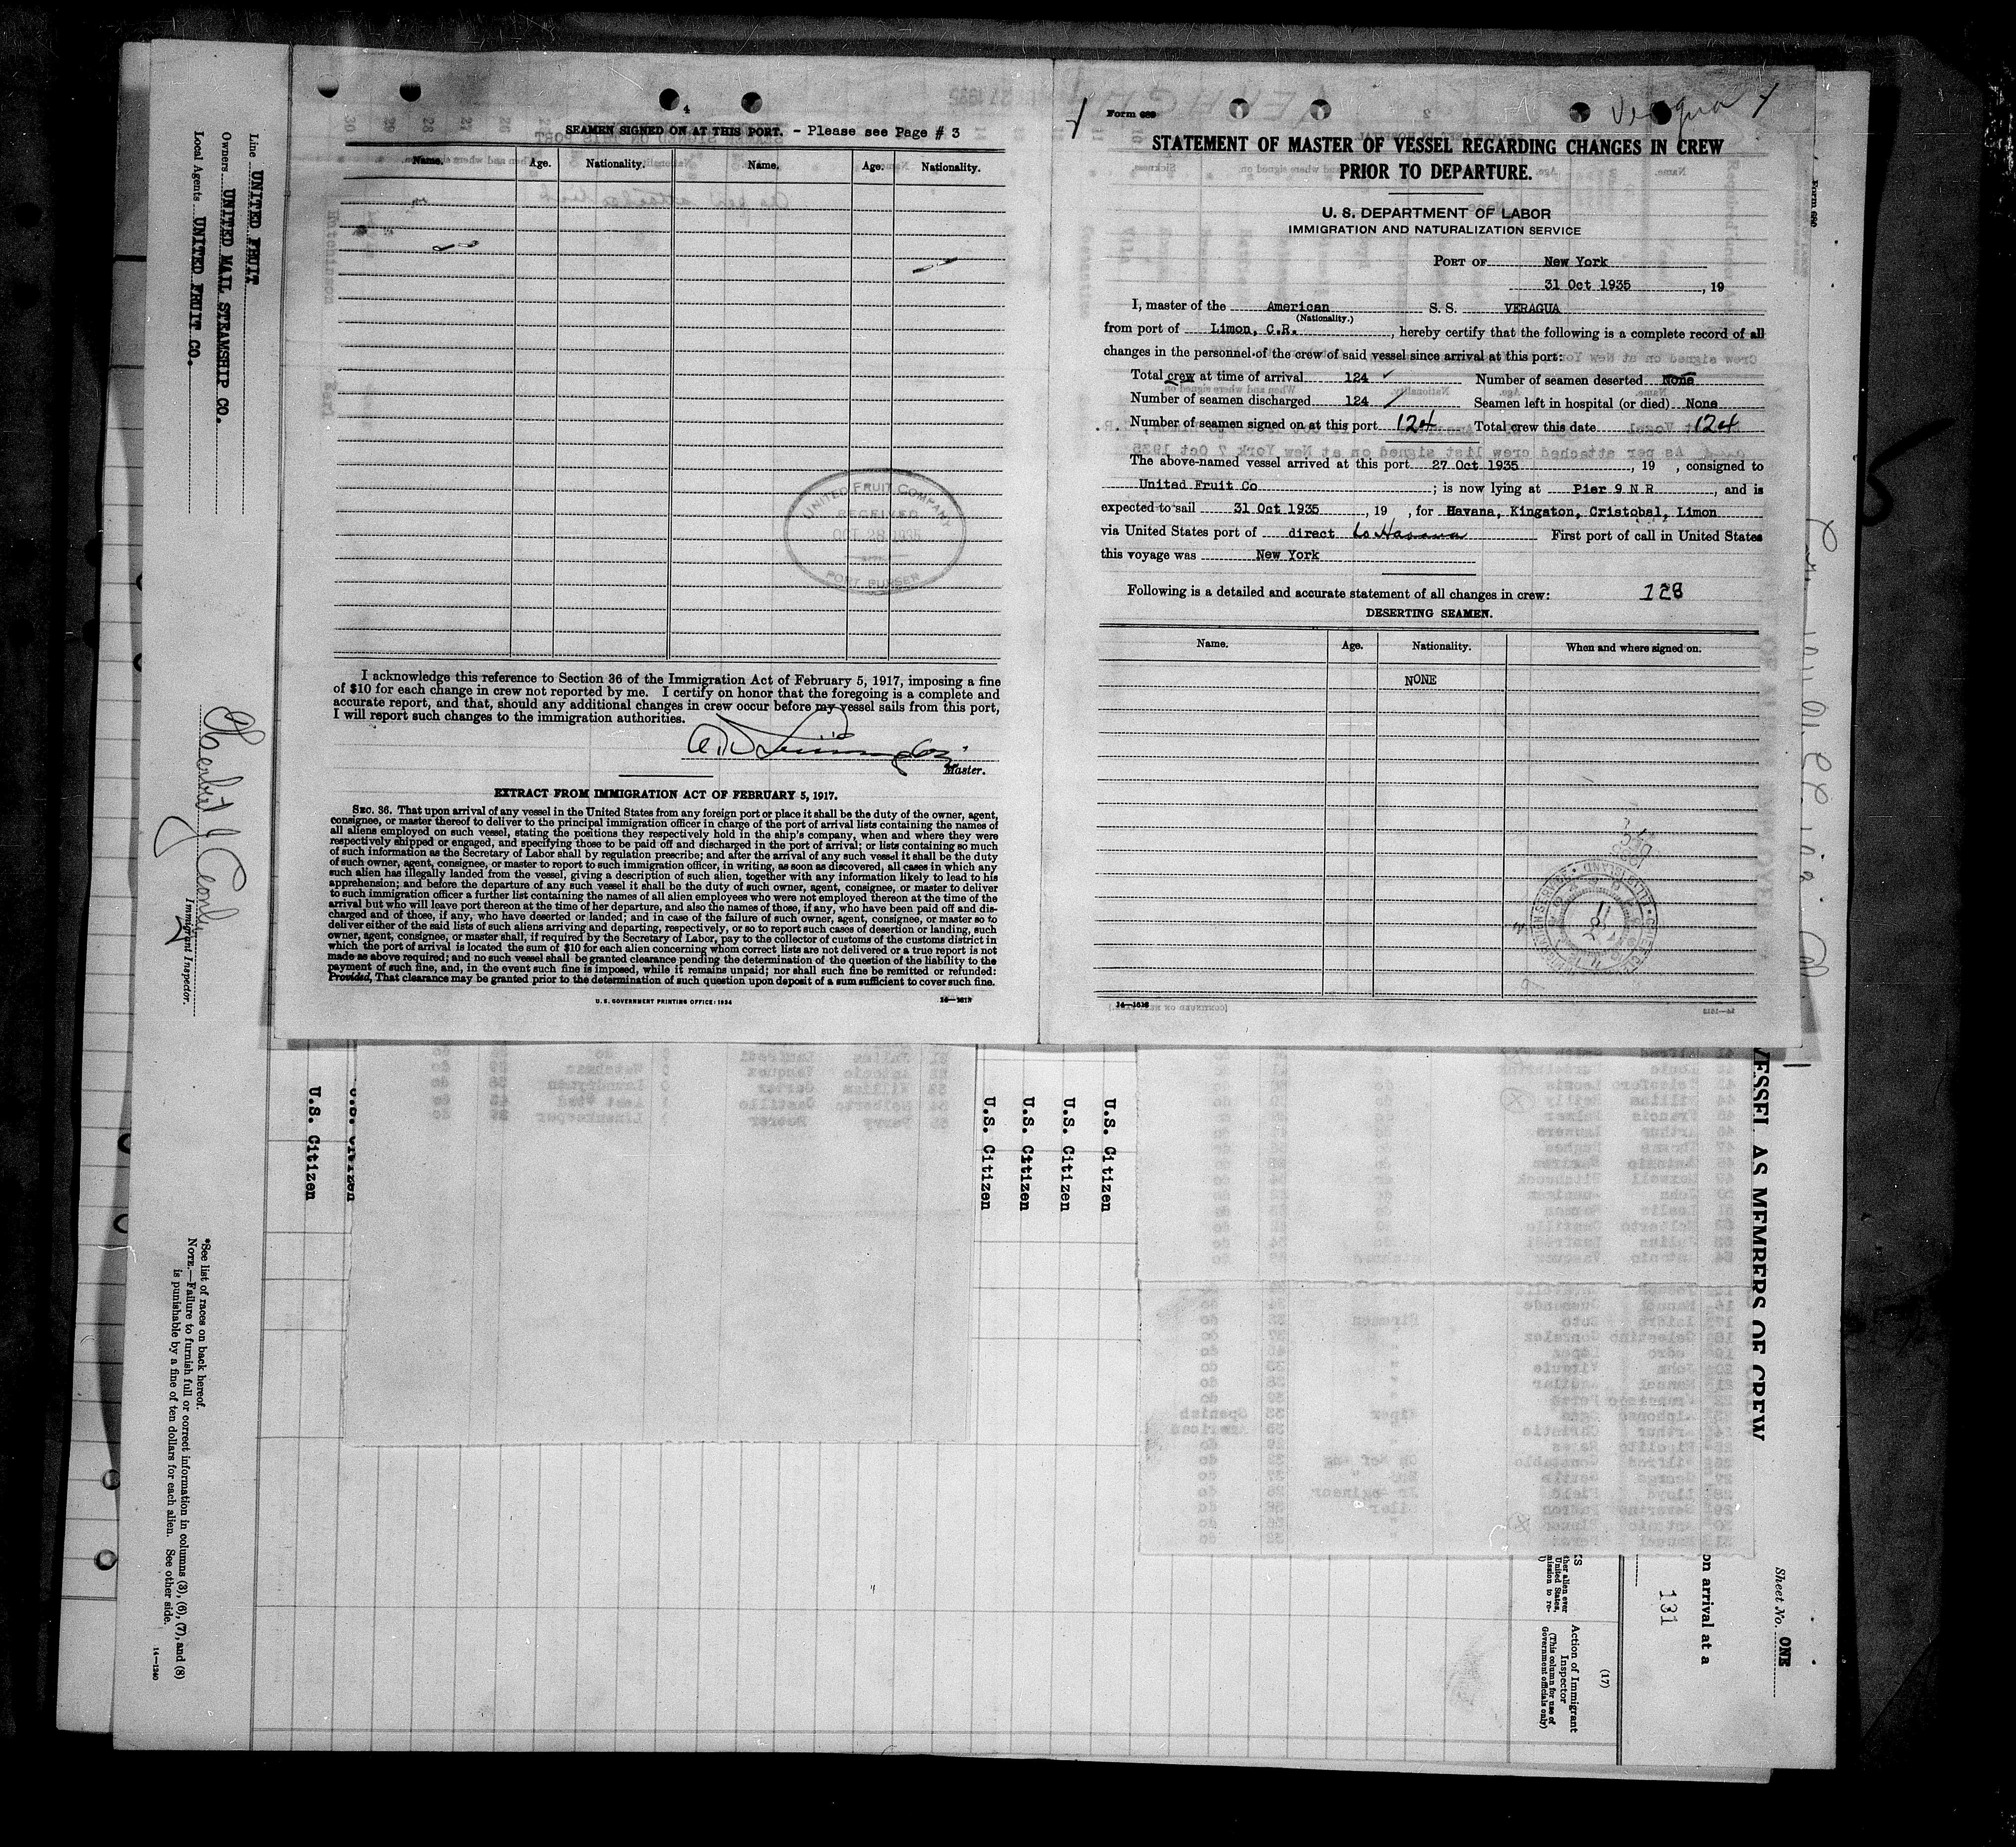 4
SEAMEN SIGNED ON AT THIS PORT. - Please see Page # 3
Name. Age. Nationality. Name. Age. Nationality.
UNITED FRUIT COMPANY
RECEIVED
OCT 28 1935
PORT PURSER
I acknowledge this reference to Section 36 of the Immigration Act of February 5, 1917, imposing a fine
of $10 for each change in crew not reported by me. I certify on honor that the foregoing is a complete and
accurate report, and that, should any additional changes in crew occur before my vessel sails from this port,
I will report such changes to the immigration authorities.
Master.
EXTRACT FROM IMMIGRATION ACT OF FEBRUARY 5, 1917.
SEC. 36. That upon arrival of any vessel in the United States from any foreign port or place it shall be the duty of the owner, agent,
consignee, or master thereof to deliver to the principal immigration officer in charge of the port of arrival lists containing the names of
all aliens employed on such vessel, stating the positions they respectively hold in the ship's company, when and where they were
respectively shipped or engaged, and specifying those to be paid off and discharged in the port of arrival; or lists containing so much
of such information as the Secretary of Labor shall by regulation prescribe; and after the arrival of any such vessel it shall be the duty
of such owner, agent, consignee, or master to report to such immigration officer, in writing, as soon as discovered, all cases in which any
such alien has illegally landed from the vessel, giving a description of such alien, together with any information likely to lead to his
apprehension; and before the departure of any such vessel it shall be the duty of such owner, agent, consignee, or master to deliver
to such immigration officer a further list containing the names of all alien employees who were not employed thereon at the time of the
arrival but who will leave port thereon at the time of her departure, and also the names of those, if any, who have been paid off and dis-
charged and of those, if any, who have deserted or landed; and in case of the failure of such owner, agent, consignee, or master so to
deliver either of the said lists of such aliens arriving and departing, respectively, or so to report such cases of desertion or landing, such
owner, agent, consignee, or master shall, if required by the Secretary of Labor, pay to the collector of customs of the customs district in
which the port of arrival is located the sum of $10 for each alien concerning whom correct lists are not delivered or a true report is not
made as above required; and no such vessel shall be granted clearance pending the determination of the question of the liability to the
payment of such fine, and, in the event such fine is imposed, while it remains unpaid; nor shall such fine be remitted or refunded:
Provided, That clearance may be granted prior to the determination of such question upon deposit of a sum sufficient to cover such fine.
U. S. GOVERNMENT PRINTING OFFICE: 1934
Form 689
Veragua
STATEMENT OF MASTER OF VESSEL REGARDING CHANGES IN CREW
PRIOR TO DEPARTURE.
U. S. DEPARTMENT OF LABOR
IMMIGRATION AND NATURALIZATION SERVICE
PORT OF New York
31 Oct 1935, 19
I, master of the American S. S. VERAGUA
(Nationality.)
from port of Limon, C.R., hereby certify that the following is a complete record of all
changes in the personnel of the crew of said vessel since arrival at this port:
Total crew at time of arrival 124 Number of seamen deserted None
Number of seamen discharged 124 Seamen left in hospital (or died) None
Number of seamen signed on at this port 124 Total crew this date 124
The above-named vessel arrived at this port 27 Oct 1935, 19 , consigned to
United Fruit Co; is now lying at Pier 9 N R, and is
expected to sail 31 Oct 1935, 19 , for Havana, Kingston, Cristobal, Limon
via United States port of direct to Havana First port of call in United States
this voyage was New York
Following is a detailed and accurate statement of all changes in crew: 128
DESERTING SEAMEN.
Name. Age. Nationality. When and where signed on.
NONE
Line UNITED FRUIT
Owners UNITED MAIL STEAMSHIP CO.
Local Agents UNITED FRUIT CO.
Immigrant Inspector.
*See list of races on back hereof.
NOTE.—Failure to furnish full or correct information in columns (3), (6), (7), and (8)
is punishable by a fine of ten dollars for each alien. See other side.
14—1240
U.S. Citizen
U.S. Citizen
U.S. Citizen
U.S. Citizen
U.S. Citizen
U.S. Citizen
VESSEL AS MEMBERS OF CREW
Sheet No. ONE
on arrival at a
131
(17)
Action of Immigrant
Inspector
(This column for use of
Government officials only)